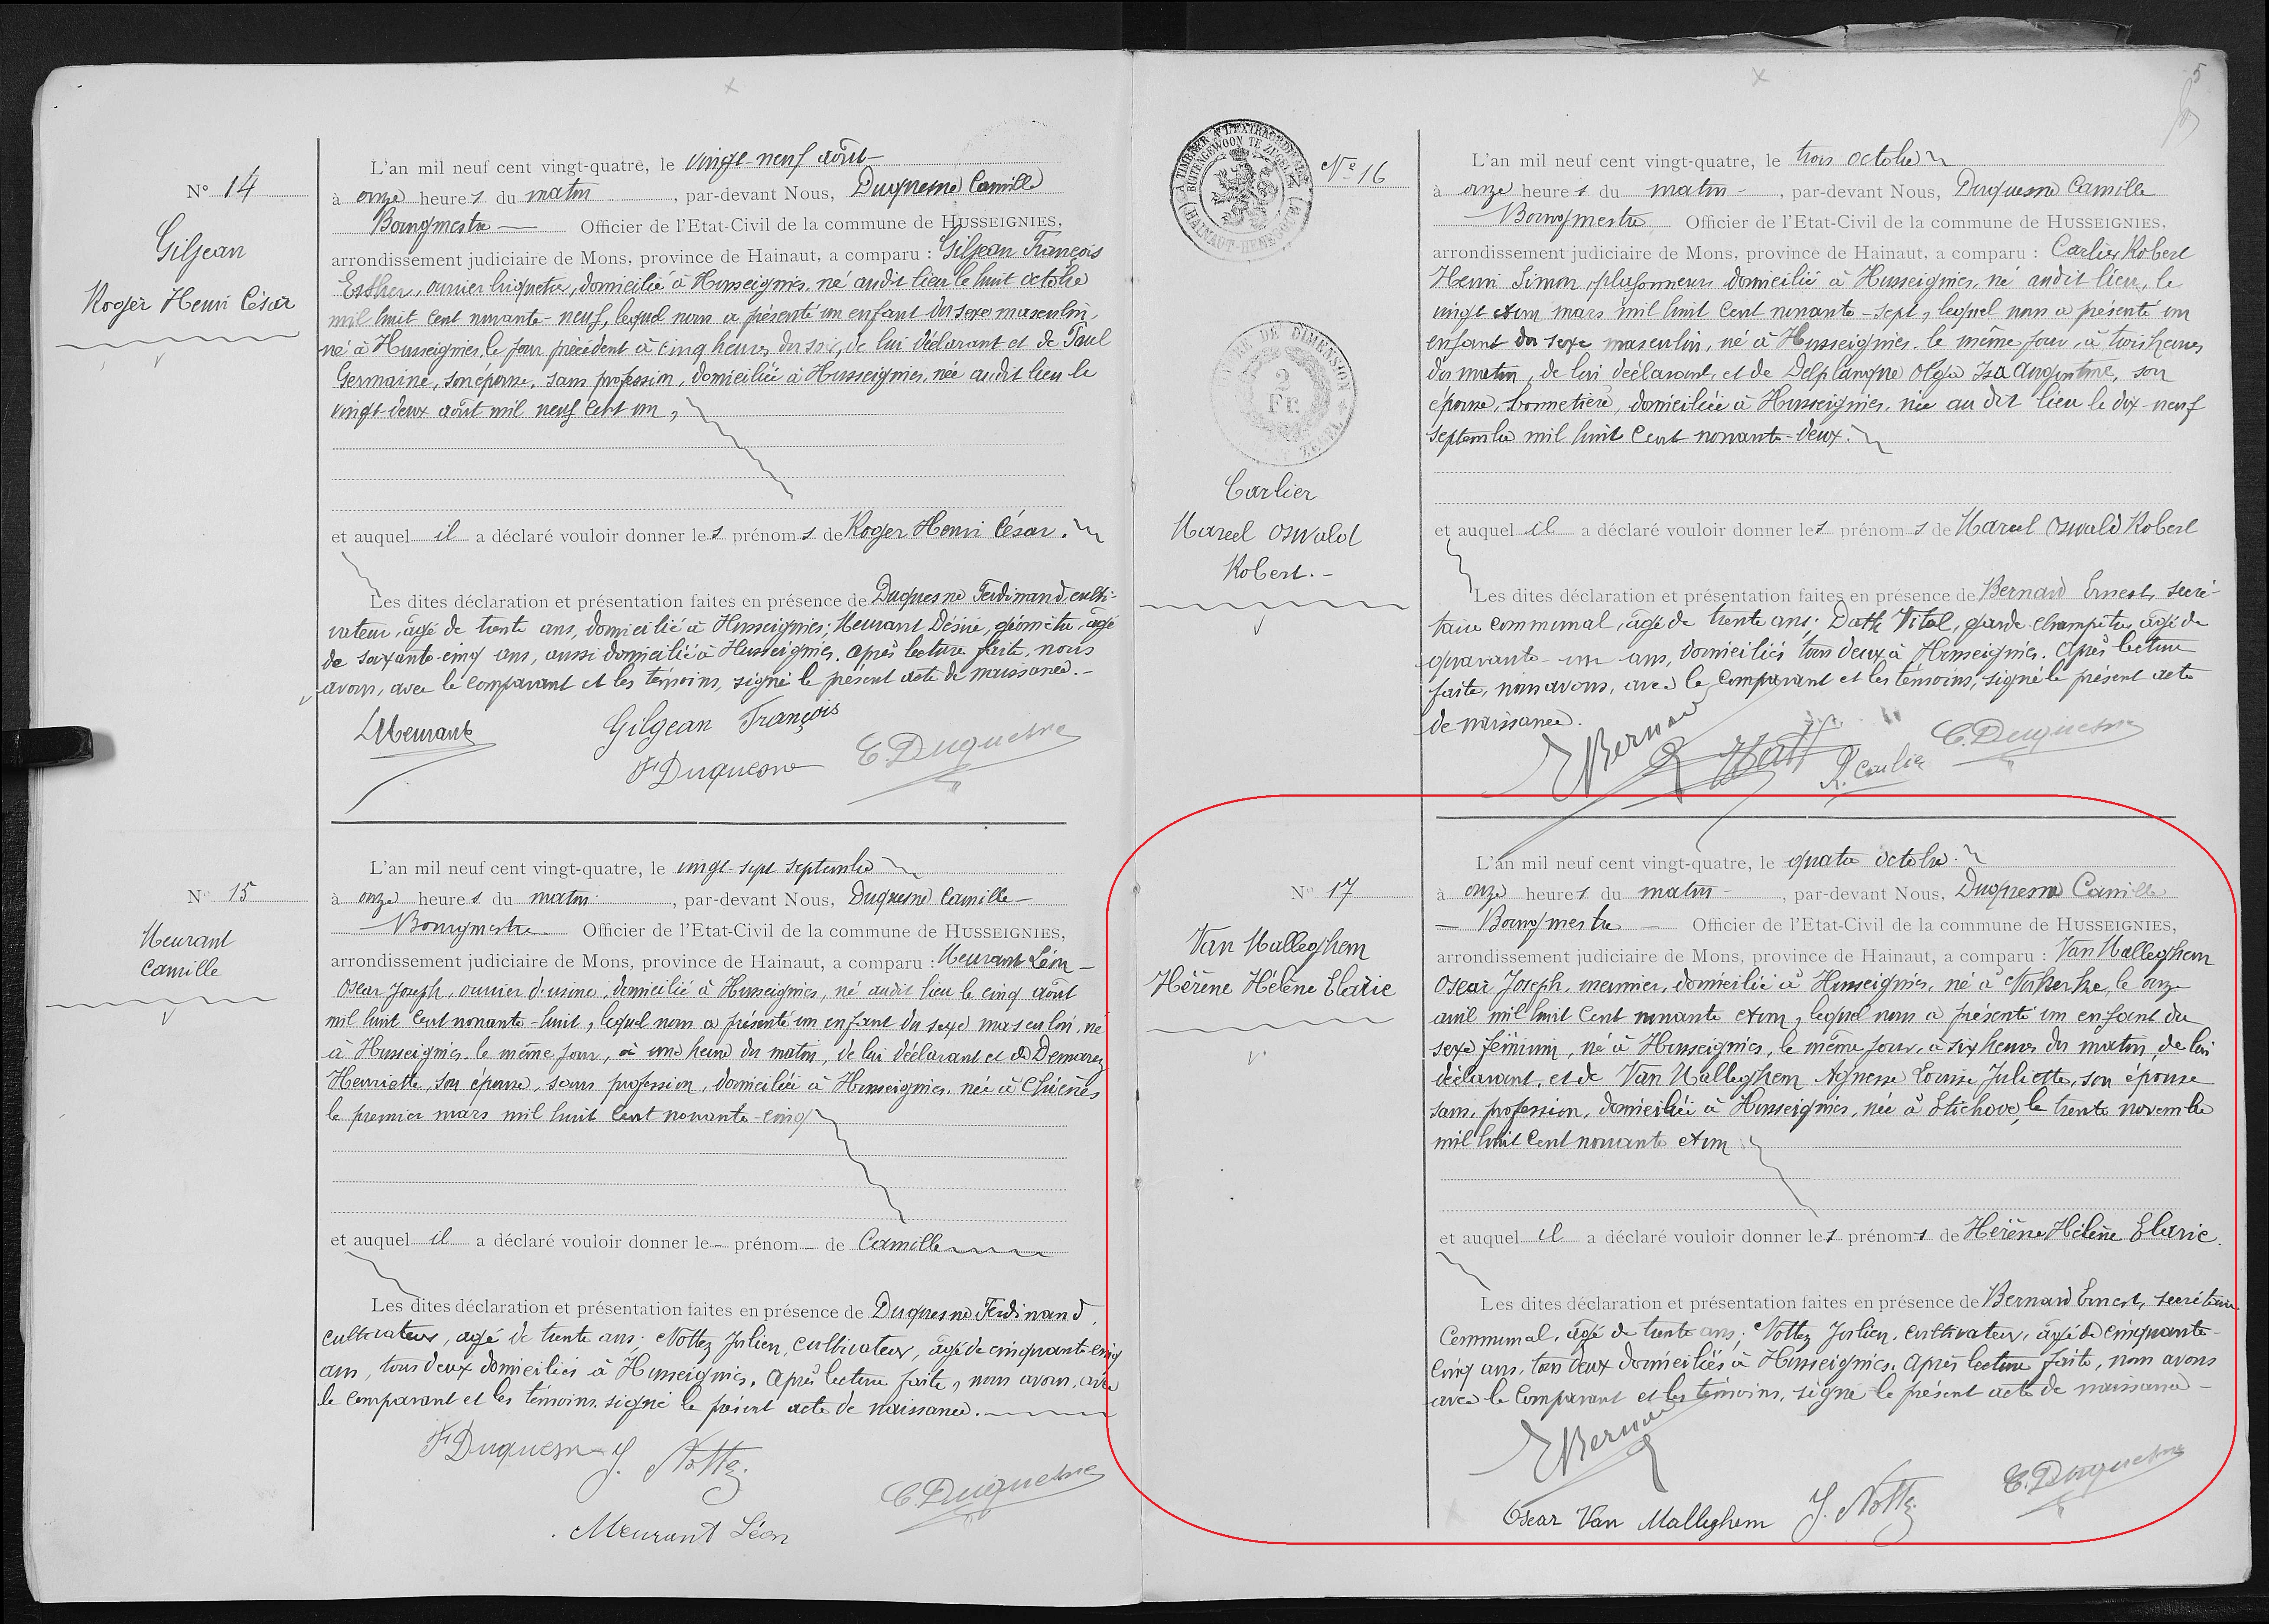 N° 14
Giljean
Roger Henri César
L'an mil neuf cent vingt-quatre, le vingt-neuf août
à onze heures du matin, par-devant Nous, Duquesne Camille
Bourgmestre Officier de l'Etat-Civil de la commune de HUSSEIGNIES,
arrondissement judiciaire de Mons, province de Hainaut, a comparu : Giljean François
Esther, ouvrier briquetier, domicilié à Husseignies, né audit lieu le huit octobre
mil huit cent nonante-neuf, lequel nous a présenté un enfant du sexe masculin,
né à Husseignies le jour précédent à cinq heures du soir, de lui déclarant et de Paul
Germaine, son épouse, sans profession, domiciliée à Husseignies, née audit lieu le
vingt-deux août mil neuf cent un,
et auquel il a déclaré vouloir donner les prénoms de Roger Henri César.
Les dites déclaration et présentation faites en présence de Duquesne Ferdinand, culti-
vateur, âgé de trente ans, domicilié à Husseignies; Meurant Désiré, géomètre, âgé
de soixante-cinq ans, aussi domicilié à Husseignies. Après lecture faite, nous
avons, avec le comparant et les témoins, signé le présent acte de naissance.-
Meurant
Gilgean François
F Duquesne
C Duquesne
N° 15
Meurant
Camille
L'an mil neuf cent vingt-quatre, le vingt-sept septembre
à onze heures du matin, par-devant Nous, Duquesne Camille
Bourgmestre Officier de l'Etat-Civil de la commune de HUSSEIGNIES,
arrondissement judiciaire de Mons, province de Hainaut, a comparu : Meurant Léon
Oscar Joseph, ouvrier d'usine, domicilié à Husseignies, né audit lieu le cinq août
mil huit cent nonante-huit, lequel nous a présenté un enfant du sexe masculin, né
à Husseignies le même jour, à une heure du matin, de lui déclarant et de Demarez
Henriette, son épouse, sans profession, domiciliée à Husseignies, née à Chièvres
le premier mars mil huit cent nonante-cinq
et auquel il a déclaré vouloir donner le prénom de Camille
Les dites déclaration et présentation faites en présence de Duquesne Ferdinand,
cultivateur, âgé de trente ans; Nottez Julien, cultivateur, âgé de cinquante-cinq
ans, tous deux domiciliés à Husseignies. Après lecture faite, nous avons, avec
le comparant et les témoins signé le présent acte de naissance.
F Duquesne
J. Nottez
C Duquesne
Meurant Léon
5
A TIMBRER A L'EXTRAORDINAIRE
BUITENGEWOON TE ZEGELEN
HAINAUT-HENEGOUW
N° 16
TIMBRE DE DIMENSION
2
FR
Carlier
Marcel Oswald
Robert.-
L'an mil neuf cent vingt-quatre, le trois octobre
à onze heures du matin, par-devant Nous, Duquesne Camille
Bourgmestre Officier de l'Etat-Civil de la commune de HUSSEIGNIES,
arrondissement judiciaire de Mons, province de Hainaut, a comparu : Carlier Robert
Henri Simon, plafonneur, domicilié à Husseignies, né audit lieu, le
vingt et un mars mil huit cent nonante-sept, lequel nous a présenté un
enfant du sexe masculin, né à Husseignies, le même jour, à trois heures
du matin, de lui déclarant, et de Delplanque Olga Isa Augustine, son
épouse, bonnetière, domiciliée à Husseignies, née au dit lieu le dix-neuf
septembre mil huit cent nonante-deux.
et auquel il a déclaré vouloir donner les prénoms de Marcel Oswald Robert
Les dites déclaration et présentation faites en présence de Bernard Ernest, secré-
taire communal, âgé de trente ans; Dath Vital, garde-champêtre, âgé de
quarante-un ans, domiciliés tous deux à Husseignies. Après lecture
faite, nous avons, avec le comparant et les témoins, signé le présent acte
de naissance.
E Bernard
Dath
R. Carlier
C. Duquesne
N° 17
Van Malleghem
Hérène Hélène Elarie
L'an mil neuf cent vingt-quatre, le quatre octobre.
à onze heures du matin, par-devant Nous, Duquesne Camille
Bourgmestre Officier de l'Etat-Civil de la commune de HUSSEIGNIES,
arrondissement judiciaire de Mons, province de Hainaut, a comparu : Van Malleghem
Oscar Joseph, meunier, domicilié à Husseignies, né à Nukerke, le onze
avril mil huit cent nonante et un, lequel nous a présenté un enfant du
sexe féminin, né à Husseignies, le même jour, à six heures du matin, de lui
déclarant, et de Van Malleghem Agnesse Louise Juliette, son épouse
sans profession, domiciliée à Husseignies, née à Etichove, le trente novembre
mil huit cent nonante et un
et auquel il a déclaré vouloir donner les prénoms de Hérène Hélène Elarie.
Les dites déclaration et présentation faites en présence de Bernard Ernest, secrétaire
communal, âgé de trente ans; Nottez Julien, cultivateur, âgé de cinquante-
cinq ans, tous deux domiciliés à Husseignies. Après lecture faite, nous avons
avec le comparant et les témoins, signé le présent acte de naissance-
E Bernard
Oscar Van Malleghem
J. Nottez
C. Duquesne